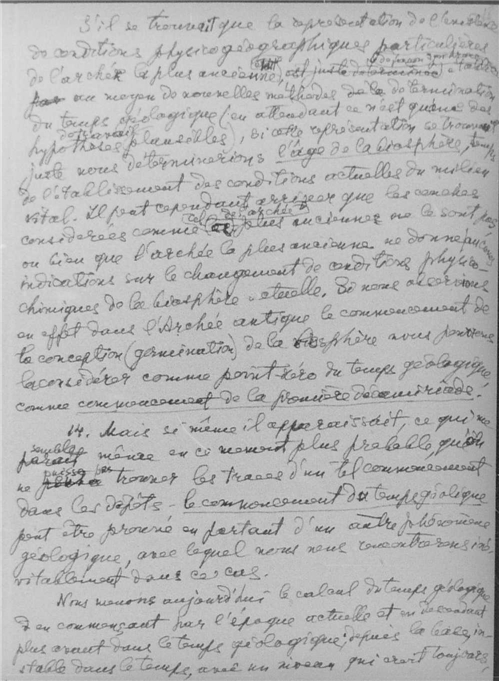 S'il se trouvait que la représentation de l'existence
de conditions physico-géographiques particulières
de l'archée la plus ancienne est juste et établie
au moyen de nouvelles méthodes de la détermination
du temps géologique (en attendant ce n'est qu'une des
hypothèses de travail plausibles), si cette représentation se trouvait
juste nous déterminerions l'âge de la biosphère,
de l'établissement des conditions actuelles du milieu
vital. Il peut cependant arriver que les couches
considérées comme celles de l'archée plus anciennes ne le sont pas
ou bien que l'archée la plus ancienne ne donne aucunes
indications sur le changement de conditions physico-
chimiques de la biosphère actuelle. Si nous observons
en effet dans l'Archée antique le commencement de
la conception (germination) de la biosphère nous pouvons
la considérer comme point zéro du temps géologique,
comme commencement de la première décamyriade.
14. Mais si même il apparaissait, ce qui me
semble même en ce moment plus probable, qu'on
ne puisse pas trouver les traces d'un tel commencement
dans les dépôts - le commencement du temps géologique
peut être prouvé en partant d'un autre phénomène
géologique, avec lequel nous nous rencontrerons iné-
vitablement dans ce cas.
Nous menons aujourd'hui le calcul du temps géologique
en commençant par l'époque actuelle et en descendant
plus avant dans le temps géologique, depuis la base in-
stable dans le temps, avec un niveau qui croît toujours,